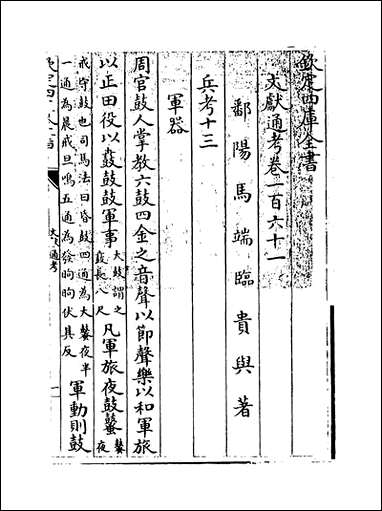 欽定四庫全書
文獻通考卷一百六十一
鄱陽馬端臨貴與著
兵考十三
軍器
周官鼓人掌教六鼓四金之音聲以節聲樂以和軍旅
以正田役以鼖鼓鼓軍事大鼓謂之鼖長八尺凡軍旅夜鼓鼜鼜夜
戒守鼓也司馬法曰昏鼓四通為大鼜夜半
一通為晨戒旦鳴五通為發昫昫伏具反
軍動則鼓
文獻通考
一